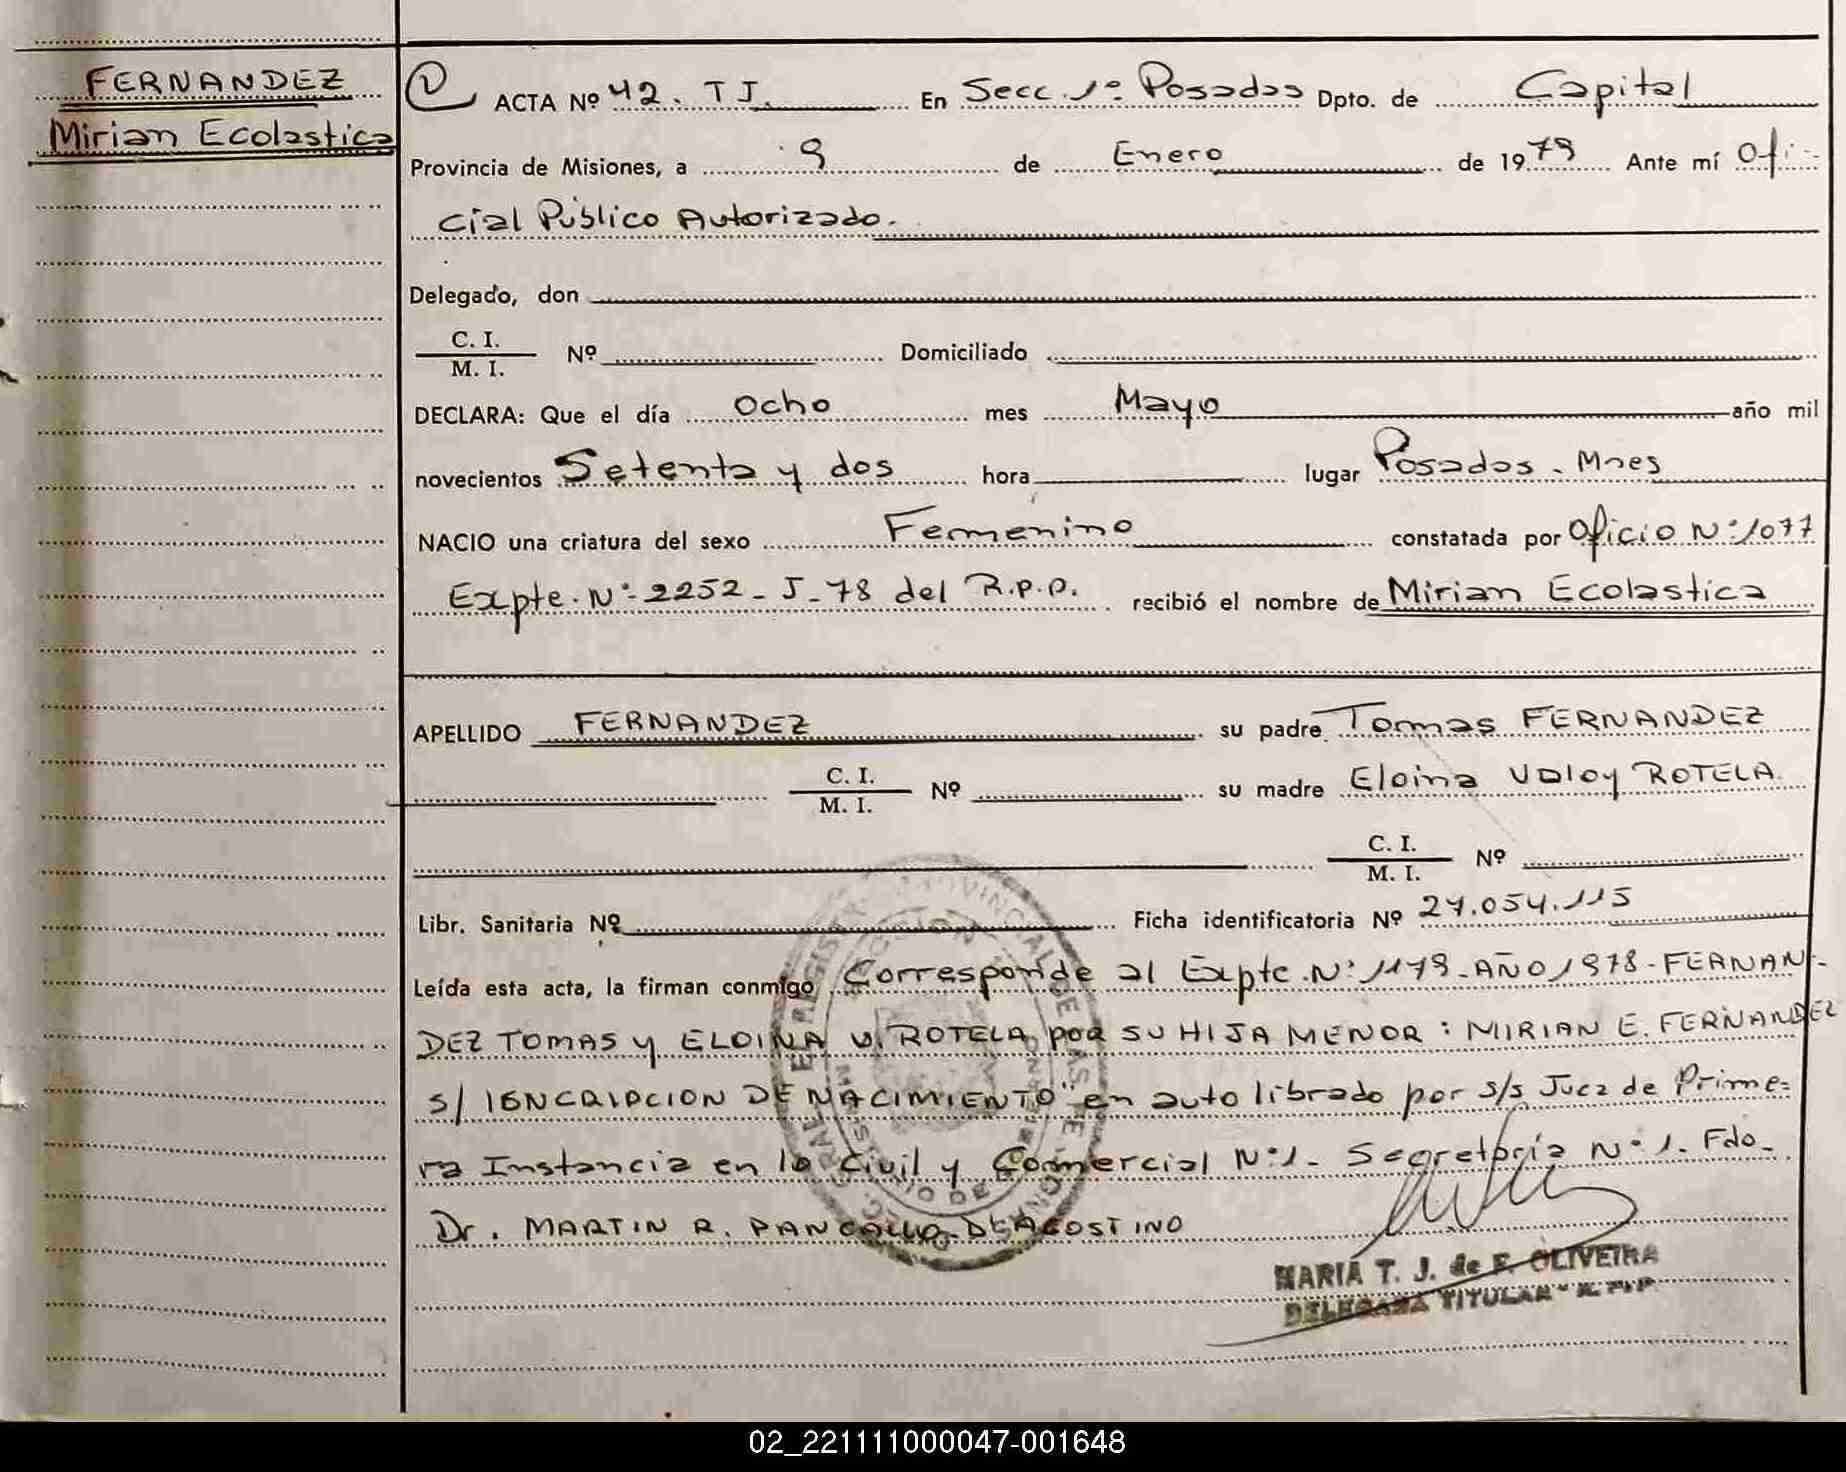 FERNANDEZ
Mirian Ecolastica
ACTA Nº 42. TJ. En Secc. 1º Posadas Dpto. de Capital
Provincia de Misiones, a 9 de Enero de 1979 Ante mí Ofi-
cial Público Autorizado.
Delegado, don
C. I.
M. I. Nº Domiciliado
DECLARA: Que el día ocho mes Mayo año mil
novecientos Setenta y dos hora lugar Posadas - Mnes
NACIO una criatura del sexo Femenino constatada por Oficio Nº 1077
Expte. Nº 2252 - J - 78 del R.P.P. recibió el nombre de Mirian Ecolastica
APELLIDO FERNANDEZ su padre Tomas FERNANDEZ
C. I.
M. I. Nº su madre Eloina Valoy ROTELA
C. I.
M. I. Nº
Libr. Sanitaria Nº Ficha identificatoria Nº 27.054.115
Leída esta acta, la firman conmigo Corresponde al Expte. Nº 1179 - AÑO 1978 - FERNAN-
DEZ TOMAS y ELOINA V. ROTELA por SU HIJA MENOR : MIRIAN E. FERNANDEZ
S/ ISNCRIPCION DE NACIMIENTO" en auto librado por s/s Juez de Prime-
ra Instancia en lo Civil y Comercial Nº 1 - Secretaría Nº 1. Fdo-
Dr. MARTIN R. PANCALLO D'AGOSTINO
MARIA T. J. de F. OLIVEIRA
DELEGADA TITULAR
02_221111000047-001648